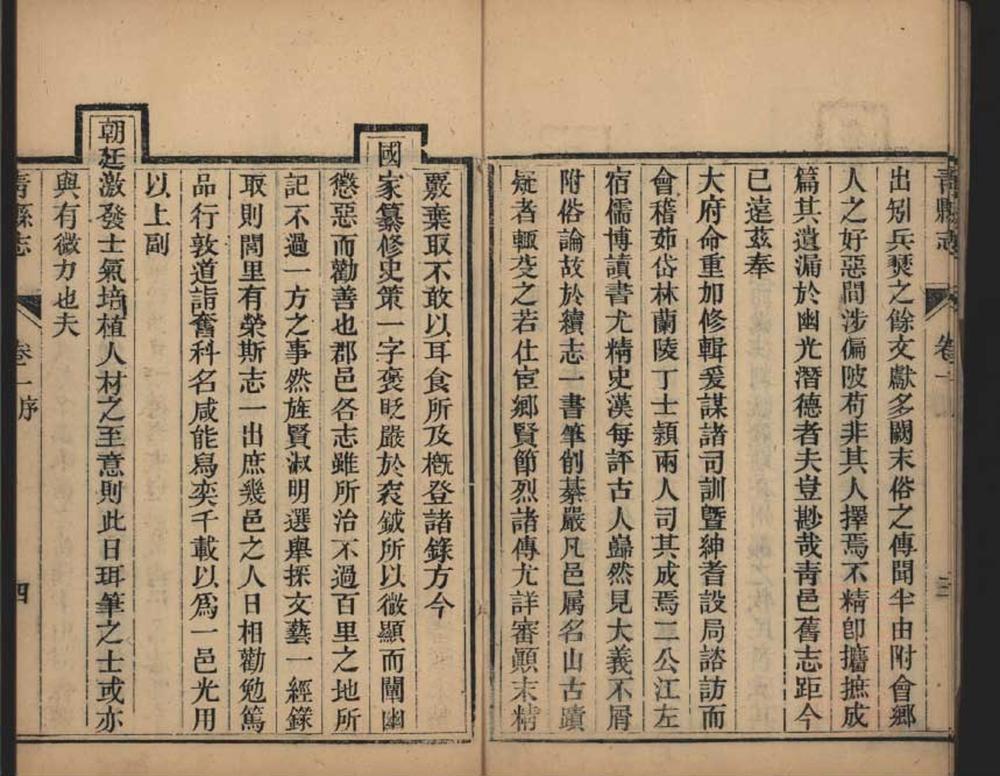 青縣志 卷一 三
出矧兵燹之餘文獻多闕末俗之傳聞半由附會鄉
人之好惡間涉偏陂苟非其人擇焉不精卽攟摭成
篇其遺漏於幽光潛德者夫豈尠哉靑邑舊志距今
已遠茲奉
大府命重加修輯爰謀諸司訓曁紳耆設局諮訪而
會稽茹岱林蘭陵丁士潁兩人司其成焉二公江左
宿儒博讀書尤精史漢每評古人巋然見大義不屑
附俗論故於續志一書筆削綦嚴凡邑属名山古蹟
疑者輙芟之若仕宦鄉賢節烈諸傳尤詳審顚末精
覈棄取不敢以耳食所及槪登諸錄方今
國家纂修史策一字褒貶嚴於衮鉞所以微顯而闡幽
懲惡而勸善也郡邑各志雖所治不過百里之地所
記不過一方之事然旌賢淑明選舉採文藝一經錄
取則閭里有榮斯志一出庶幾邑之人日相勸勉篤
品行敦道誼奮科名咸能爲奕千載以爲一邑光用
以上副
朝廷激發士氣培植人材之至意則此日珥筆之士或亦
與有微力也夫
靑縣志 卷一序 四